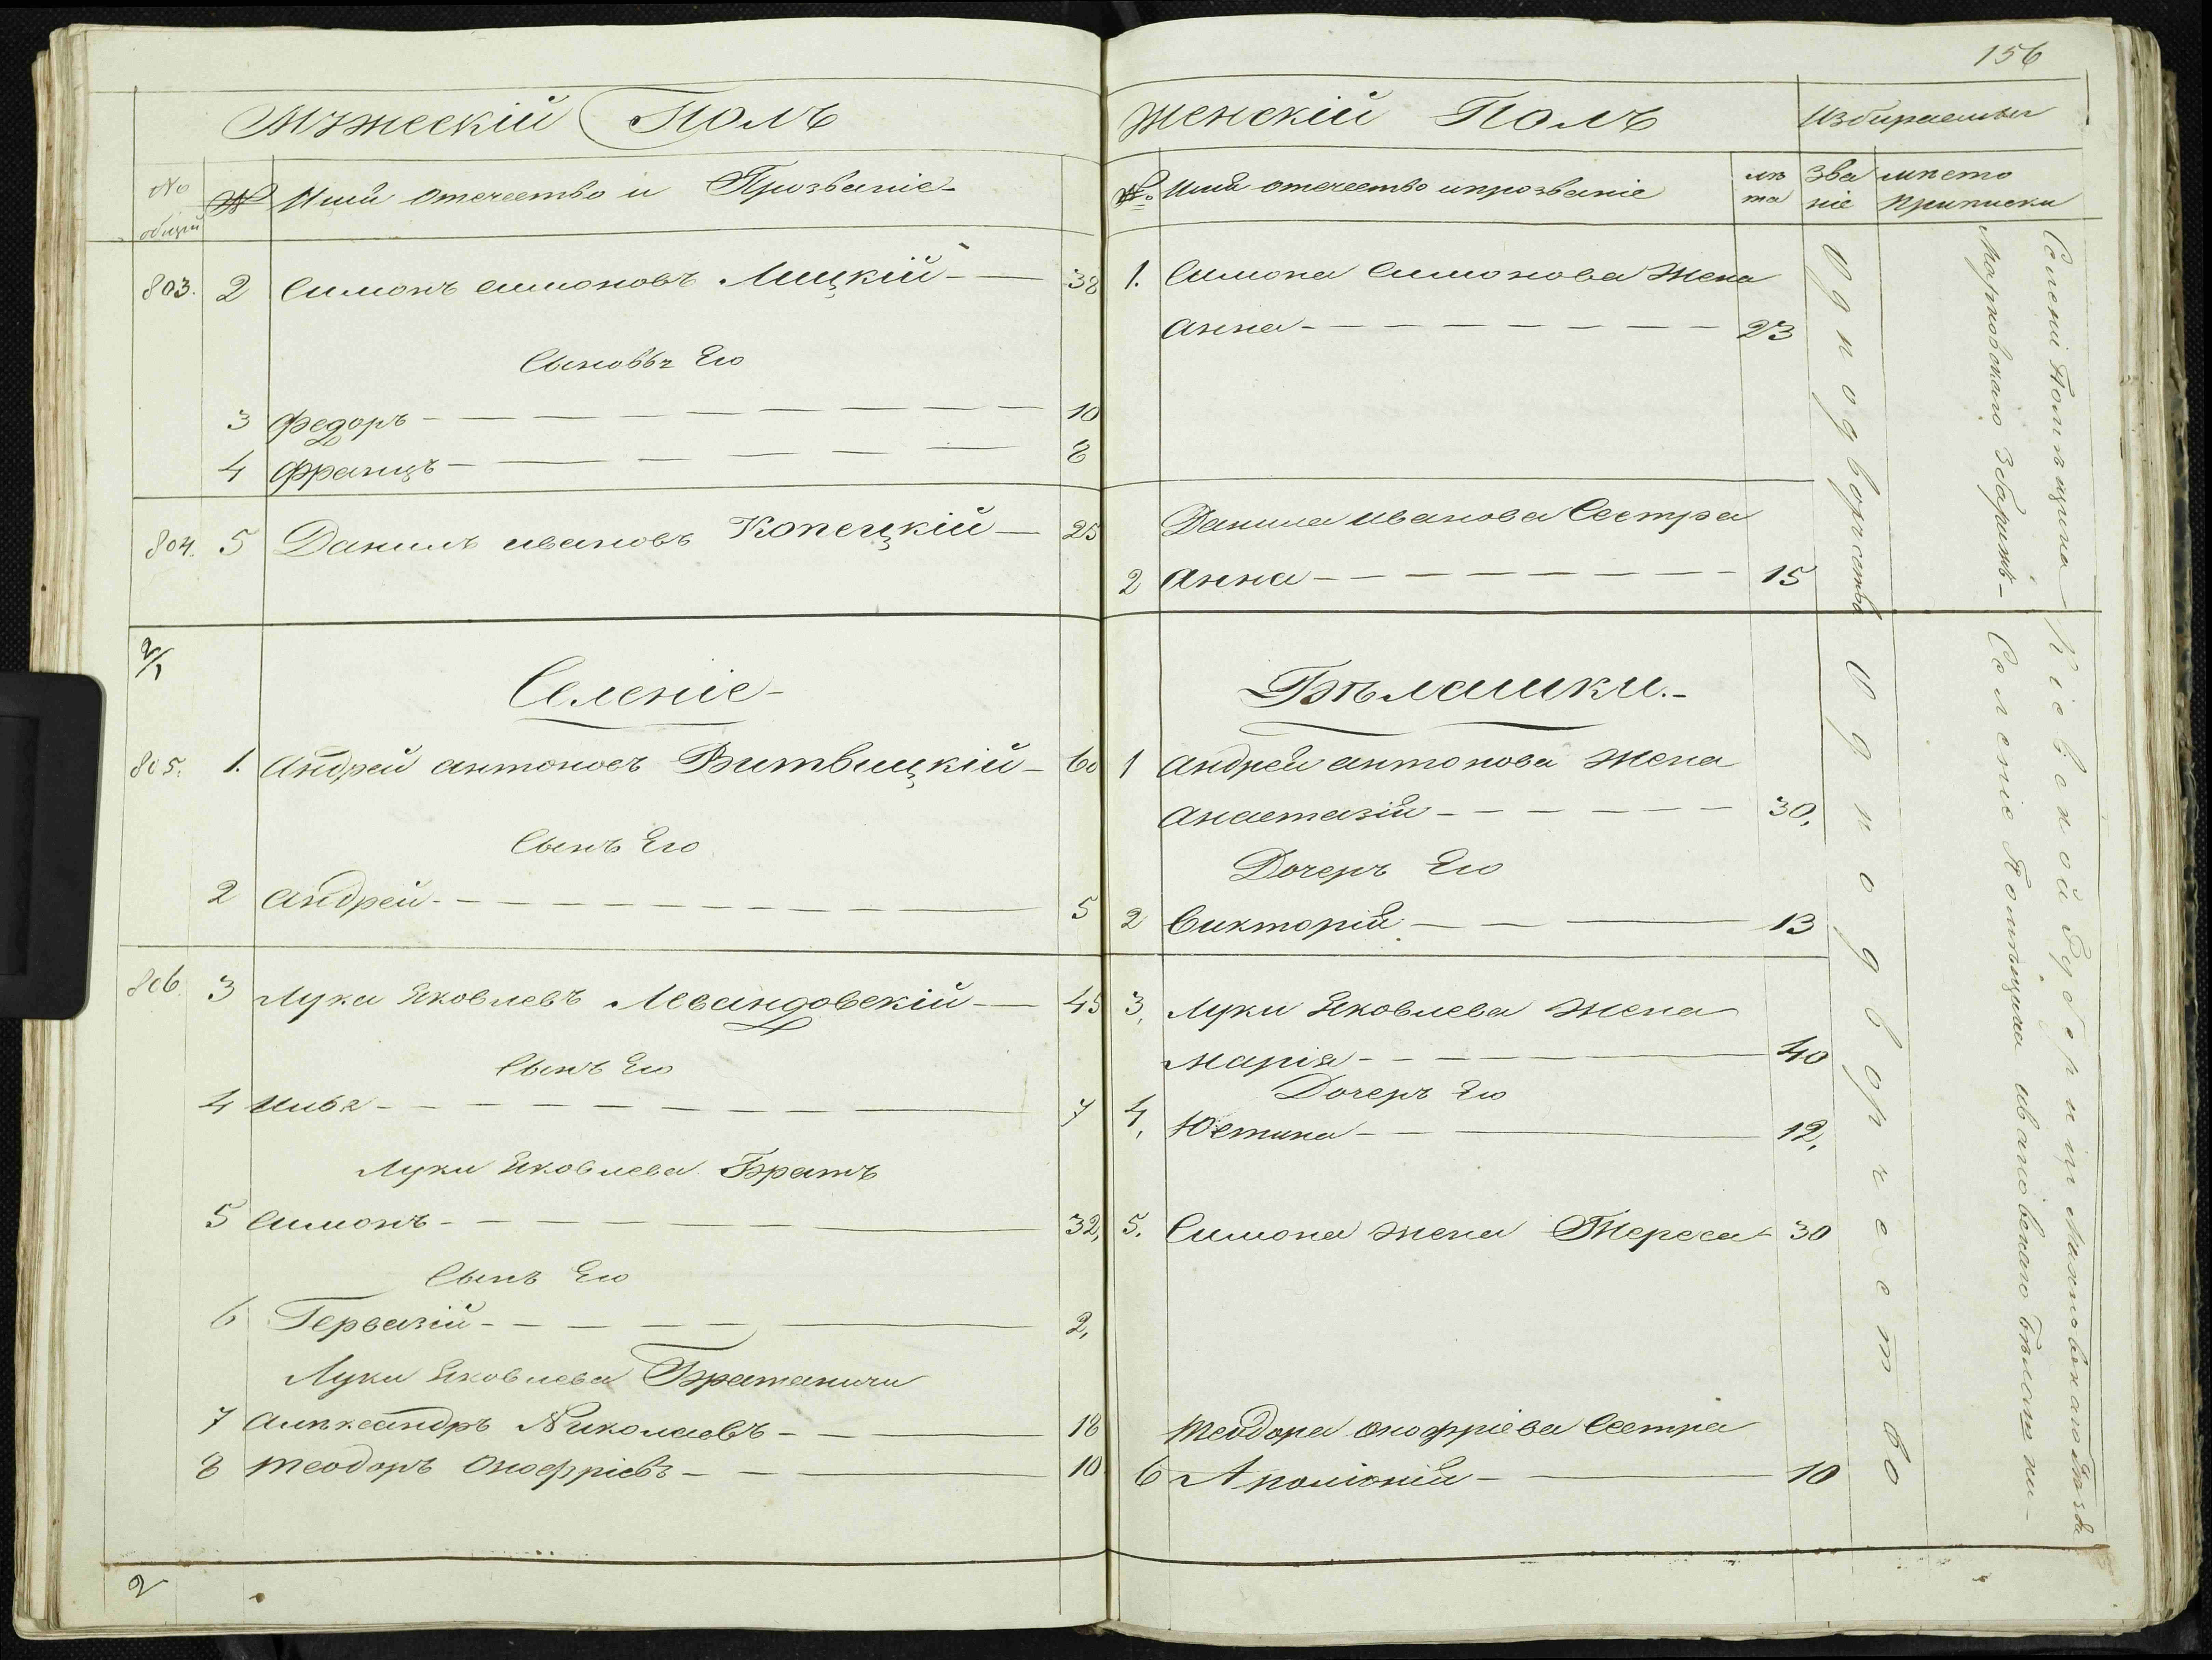 156
Мужескій Полъ
№ общій
№
Имя отечество и Прозваніе
803. 2 Симонъ симоновъ Мицкій — 38
Сыновья Его
3 Федоръ — 10
4 Францъ — 8
804. 5 Данилъ ивановъ Копецкій — 25
2/1
Селеніе
805. 1. Андрей антоновъ Витвицкій — 60
Сынъ Его
2 Андрей — 5
806 3 Лука Яковлевъ Левандовскій — 45
Сынъ Его
4 — 7
Луки Яковлева Братъ
5 Симонъ — 32,
Сынъ Его
6 Гервазій — 2,
Луки Яковлева Братаничи
7 Александръ Николаевъ — 18
8 Теодоръ Онофріевъ — 10
2
Женскій Полъ
Избираемы
№ Имя отечество и прозваніе
лѣта
Званіе
мѣсто приписки
1. Симона Симонова Жена
Анна — 23
Данила иванова Сестра
2 Анна — 15
Бѣлашки.
1 Андрея антонова Жена
Анастазія — 30,
Дочеръ Его
2 Викторія — 13
3, Луки Яковлева Жена
Марія — 40
Дочеръ Его
4, Юстина — 12,
5. Симона жена Тереса — 30
Теодора онофріева Сестра
6 Аполонія — 10
Однодворчество
Однодворчество
Кіевской Губерніи Махновскаго Уѣзда
Селеніе